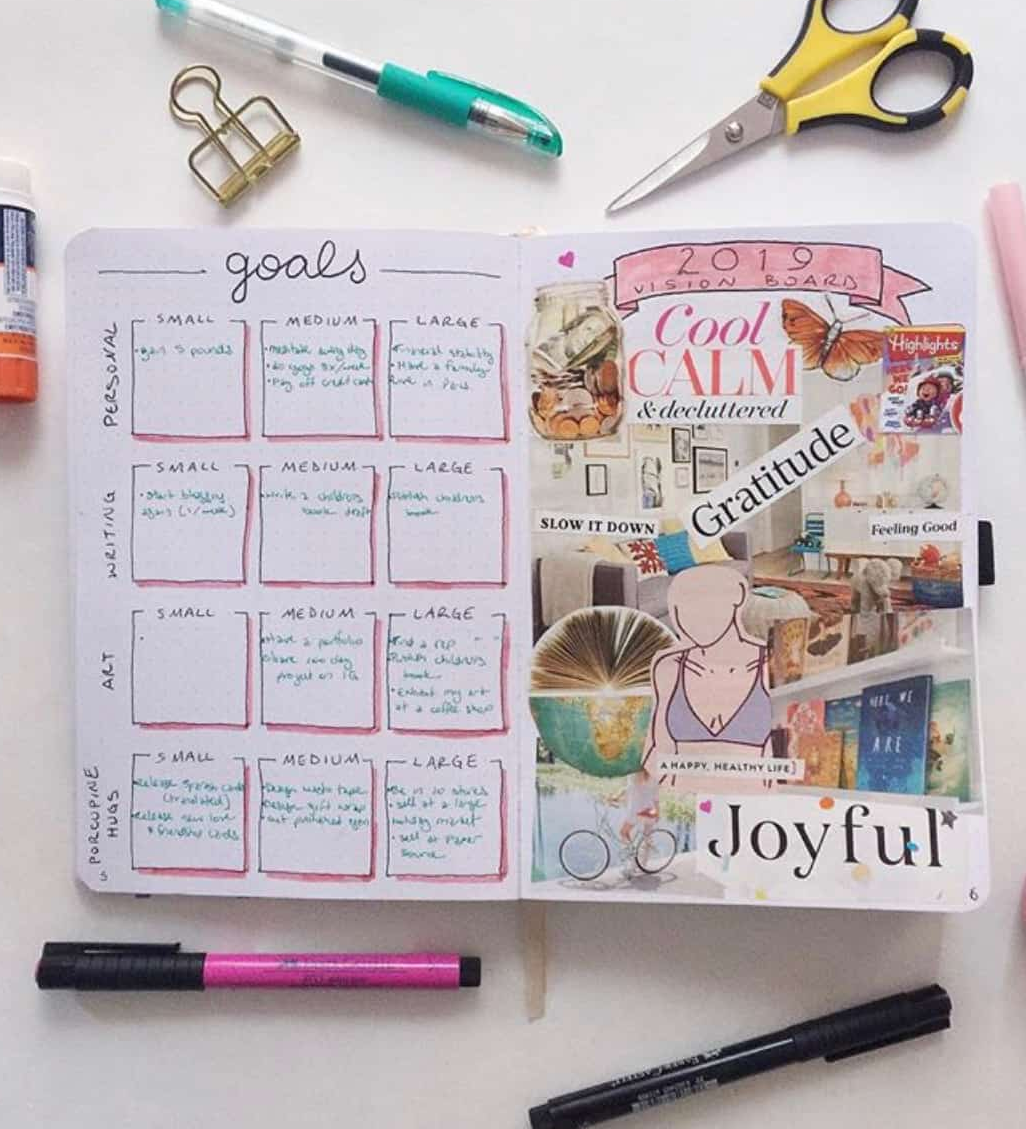 goals
PERSONAL
SMALL
• gain 5 pounds
MEDIUM
• meditate every day
• do yoga 3x/week
• Pay off credit card
LARGE
Financial stability
• Have a family
live in
WRITING
SMALL
• Start blogging
again (1/week)
MEDIUM
write 2 childrens
book draft
LARGE
publish childrens
book
ART
SMALL
MEDIUM
Have a portfolio
Share 100 day
project on IG
LARGE
Find a rep
Publish childrens
book
• Exhibit my art
at a coffee shop
PORCUPINE
HUGS
SMALL
Release Spanish cards
(translated)
Release new love
& friendship cards
MEDIUM
Design washi tape
Design gift wrap
LARGE
Be in 10 stores
• sell at a large
holiday market
• sell at Paper
Source
5
2019
VISION BOARD
Cool
CALM
& decluttered
Highlights
HERE
WE
GO!
Gratitude
SLOW IT DOWN
Feeling Good
HERE WE
ARE
A HAPPY, HEALTHY LIFE]
Joyful
6